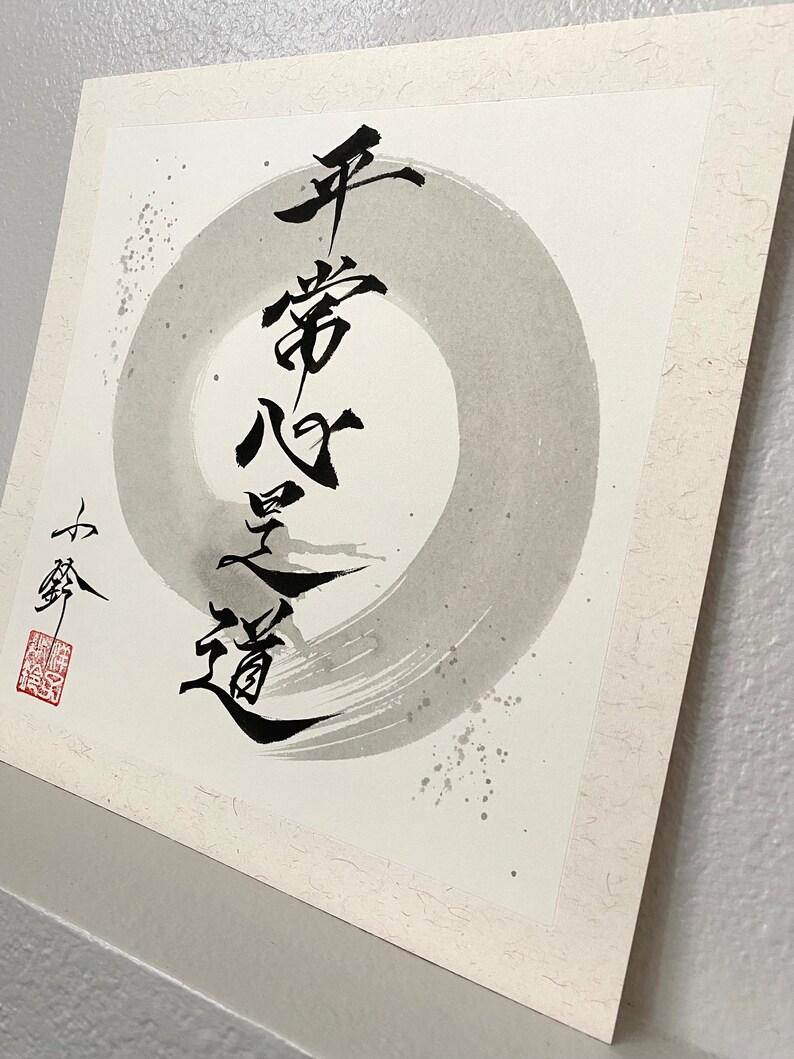 平常心是道
小